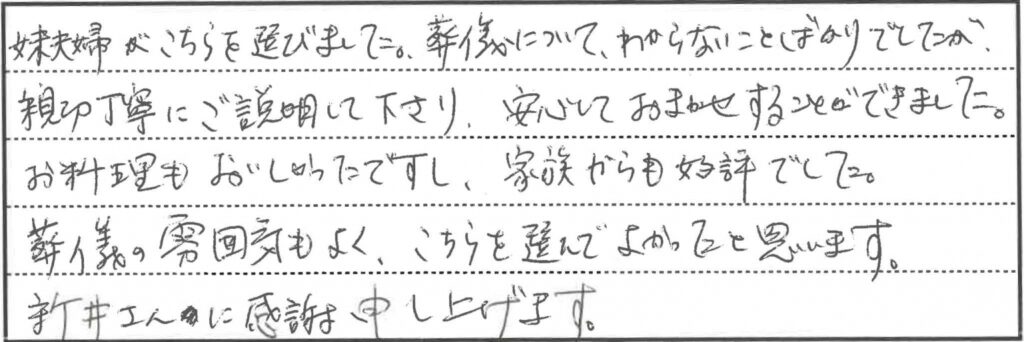 妹夫婦がこちらを選びました。葬儀について、わからないことばかりでしたが、
親切丁寧にご説明して下さり、安心しておまかせすることができました。
お料理もおいしかったですし、家族からも好評でした。
葬儀の雰囲気もよく、こちらを選んでよかったと思います。
新井さんに感謝申し上げます。